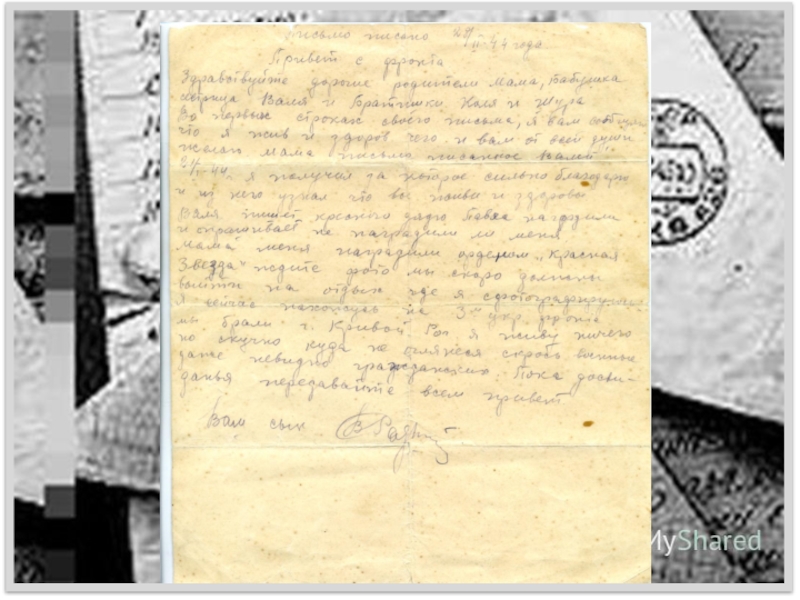 Письмо писано 29/II-44 года
Привет с фронта
Здравствуйте дорогие родители мама, бабушка
сестрица Валя и братишки Коля и Шура
Во первых строках своего письма, я вам сообщаю
что я жив и здоров чего и вам от всей души
желаю мама письмо писанное Валей
я получил за которое сильно благодарю
и из него узнал что все живы и здоровы
Валя пишет дядю Павла наградили
и спрашивает не наградили ли меня
мама меня наградили орденом „Красная
Звезда" ждите фото мы скоро должны
выйти на отдых где я сфотографируюсь
Я сейчас нахожусь на 3ем укр. фронте
мы брали г. Кривой Рог я живу ничего
но скучно куда не глянеся скрозь военные
даже невидно гражданских. Пока досви-
данья передавайте всем привет
Ваш сын
MyShared